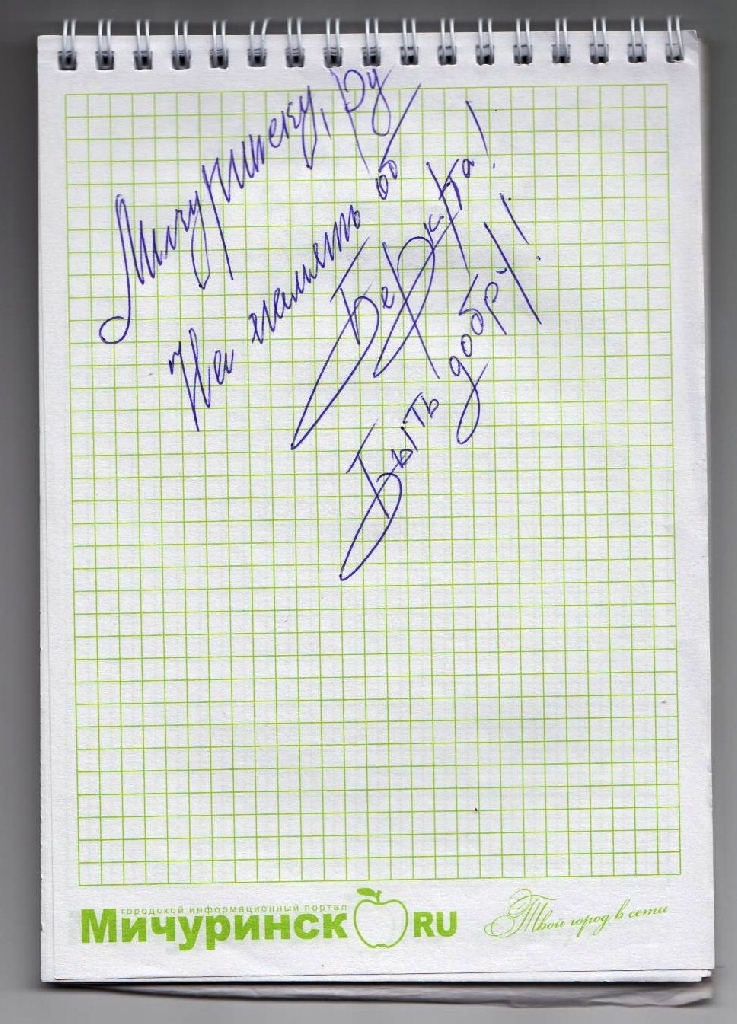 Мичуринску.ру
На память от
Беркута!
Быть добру!!
городской информационный портал
Мичуринск RU
Твой город в сети